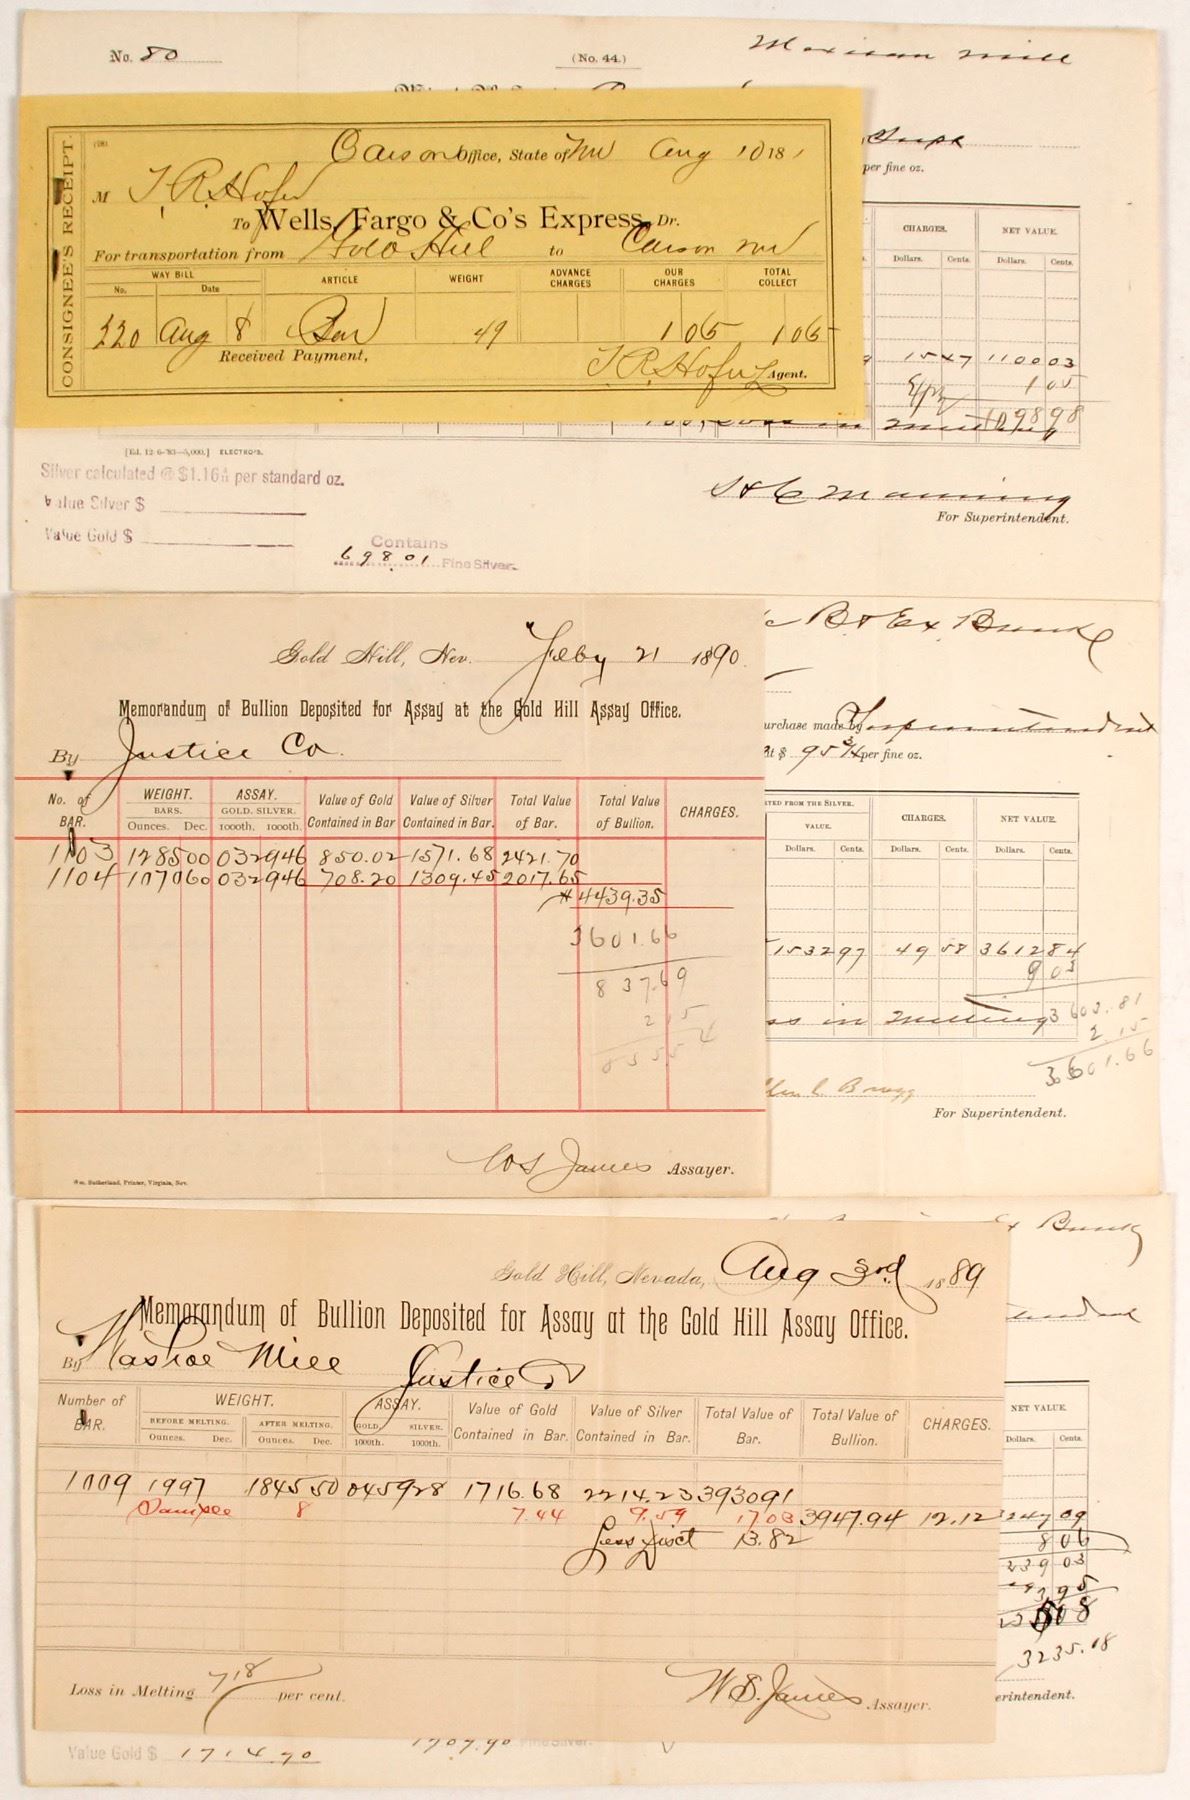 No. 80 (No. 44.) Mexican Mill
Supt
per fine oz.
CHARGES. NET VALUE.
Dollars. Cents. Dollars. Cents.
CONSIGNEE'S RECEIPT.
Carson Office, State of Nev Aug 10 18
M T. R. Hofer
To Wells, Fargo & Co's Express, Dr.
For transportation from Gold Hill to Carson Nev
WAY BILL ARTICLE WEIGHT ADVANCE CHARGES OUR CHARGES TOTAL COLLECT
No. Date
220 Aug 8 Bar 49 1 05 1 05
Received Payment,
T. R. Hofer Agent.
15 47 1100 03
1 05
1098 98
[Ed. 12-6-'83—5,000.] ELECTRO'S.
Silver calculated @ $1.164 per standard oz.
Value Silver $
Value Gold $
Contains
698.01 Fine Silver.
Manning
For Superintendent.
Gold Hill, Nev. Feby 21 1890.
Memorandum of Bullion Deposited for Assay at the Gold Hill Assay Office.
By Justice Co.
No. of BAR. WEIGHT. ASSAY. Value of Gold Contained in Bar Value of Silver Contained in Bar. Total Value of Bar. Total Value of Bullion. CHARGES.
BARS. GOLD. SILVER.
Ounces. Dec. 1000th. 1000th.
1103 1285 00 032 946 850.02 1571.68 2421.70
1104 1070 60 032 946 708.20 1309.45 2017.65
4439.35
3601.66
837.69
2.15
W S James Assayer.
Wm. Sutherland, Printer, Virginia, Nev.
B & Ex Bunk
urchase made by Superintendent
At $ 95 3/4 per fine oz.
TED FROM THE SILVER. CHARGES. NET VALUE.
VALUE.
Dollars. Cents. Dollars. Cents. Dollars. Cents.
1532 97 49 58 3612 84
9 03
ss in Melting 3603.81
2.15
3601.66
For Superintendent.
Ex Bunk
Gold Hill, Nevada, Aug 3rd 1889
Memorandum of Bullion Deposited for Assay at the Gold Hill Assay Office.
By Washoe Mill Justice
Number of BAR. WEIGHT. ASSAY. Value of Gold Contained in Bar. Value of Silver Contained in Bar. Total Value of Bar. Total Value of Bullion. CHARGES.
BEFORE MELTING. AFTER MELTING. GOLD. SILVER.
Ounces. Dec. Ounces. Dec. 1000th. 1000th.
1009 1997 1845 50 045 928 1716.68 2214.23 3930 91
Sample 8 7.44 9.59 17 03 3947.94 12.12
Less Disct 13.82
Loss in Melting 7 18 per cent.
W. S. James Assayer.
NET VALUE.
Dollars. Cents.
3247 09
8 06
3239 03
3 95
3235.18
erintendent.
Value Gold $ 1714.70
1707.90 Fine Silver.